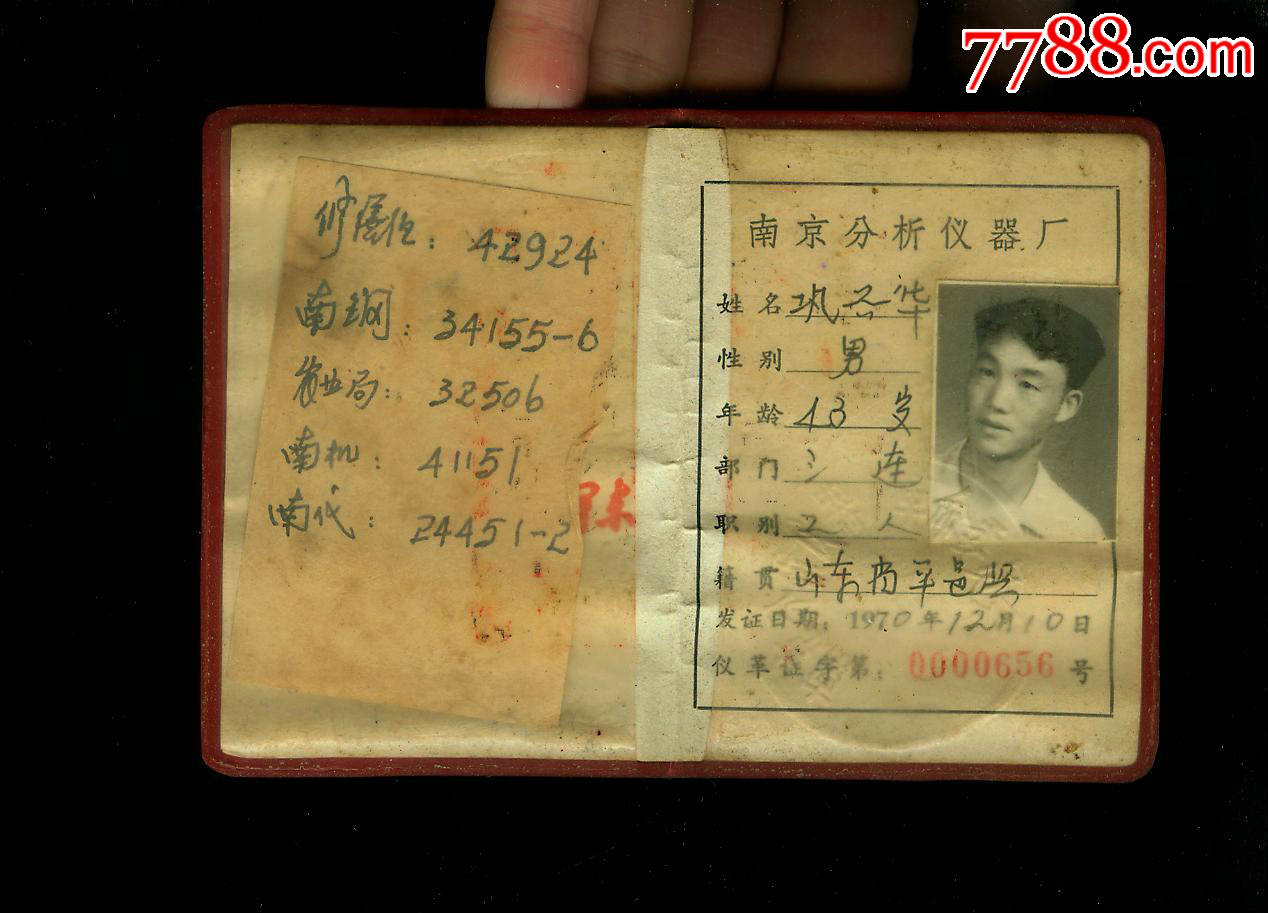 7788.com
: 42924
南钢: 34155-6
业局: 32506
南机: 41151
南代: 24451-2
南京分析仪器厂
姓名 巩 华
性别 男
年龄 43 岁
部门 连
职别 工人
籍贯 山东 平邑
发证日期: 1970年12月10日
仪革证字第: 0000656 号